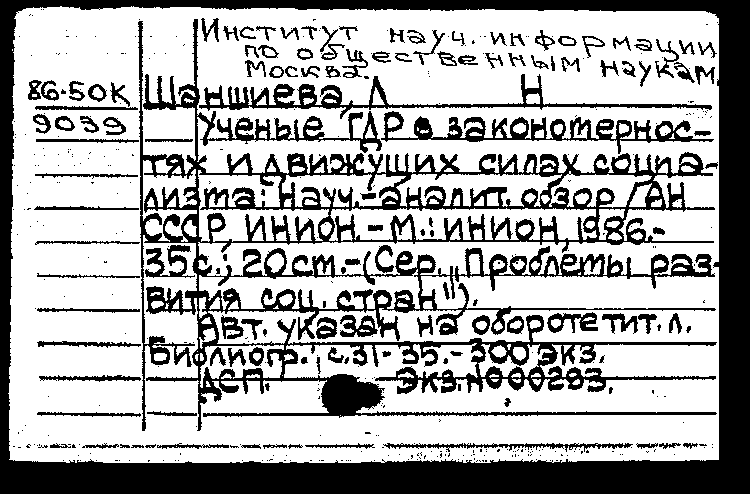 Институт науч. информации
по общественным наукам.
Москва.
86-50К Шаншиева, Л Н
9039 Ученые ГДР о закономернос-
тях и движущих силах социа-
лизма: Науч.-аналит. обзор /АН
СССР, ИНИОН.-М.: ИНИОН, 1986.-
35с.; 20см.-(Сер. „Проблемы раз-
вития соц. стран").
Авт. указан на обороте тит. л.
Библиогр.: с.31-35.-300 экз.
ДСП. Экз.N000293.